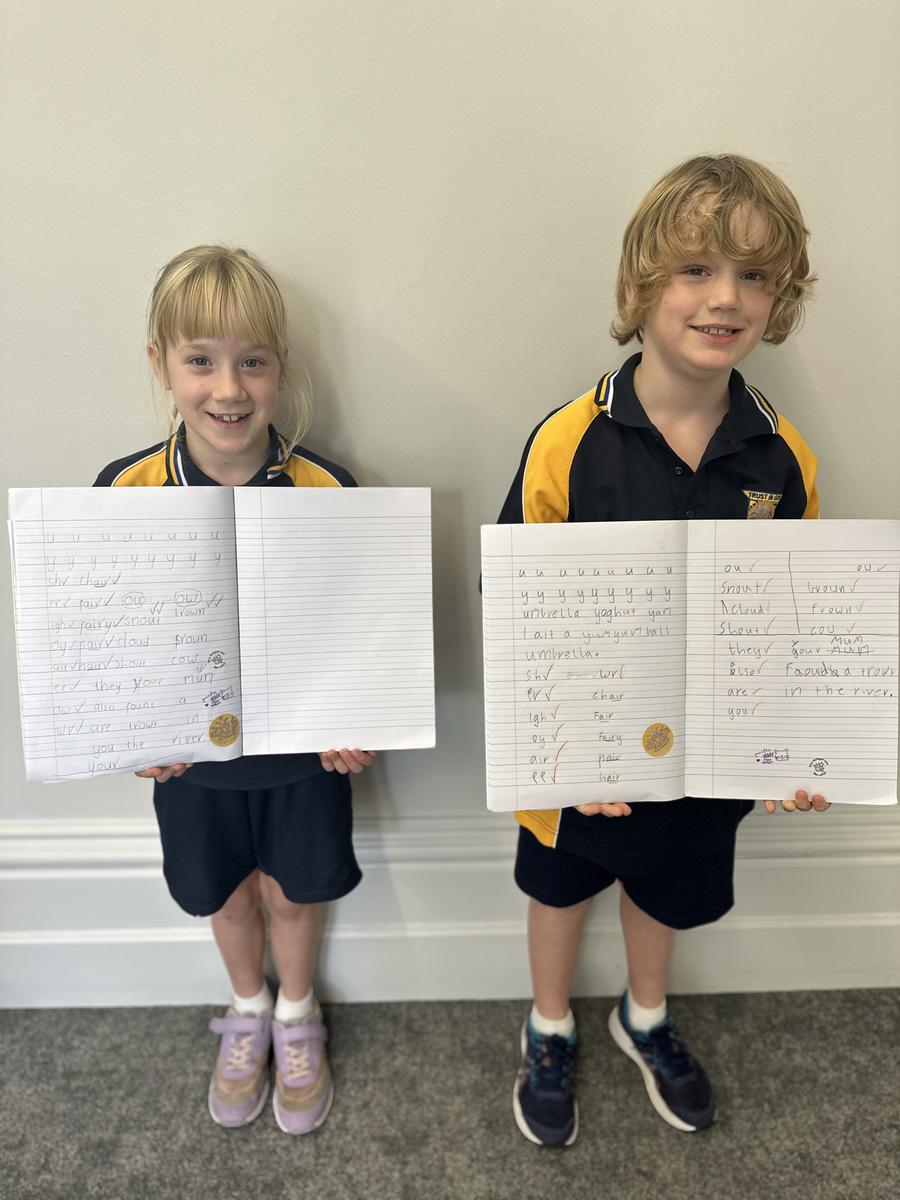 u u u u u u u u
y y y y y y y y
sh✓ chair✓
er✓ fair✓ ou✓✓ ow✓✓
igh✓ fairy✓ snout brown
oy✓ pair✓ cloud
air✓ hair✓ shout cow
ee✓ they your mum
ow✓ also a
wr✓ are trout in
you the river
your
TRUST IN GOD
u u u u u u u u
y y y y y y y y
umbrella yoghut yarn
I ait a yumyum ball
umbrella.
sh✓ wr✓
er✓ chair
igh✓ Fair
oy✓ Fairy
air✓ pair
ee✓ hair
ou✓ ow✓
Snout✓ brown✓
Cloud✓ Frown✓
Shout✓ cow✓
they✓ your MUM
also✓ a trout
are✓ in the river.
you✓